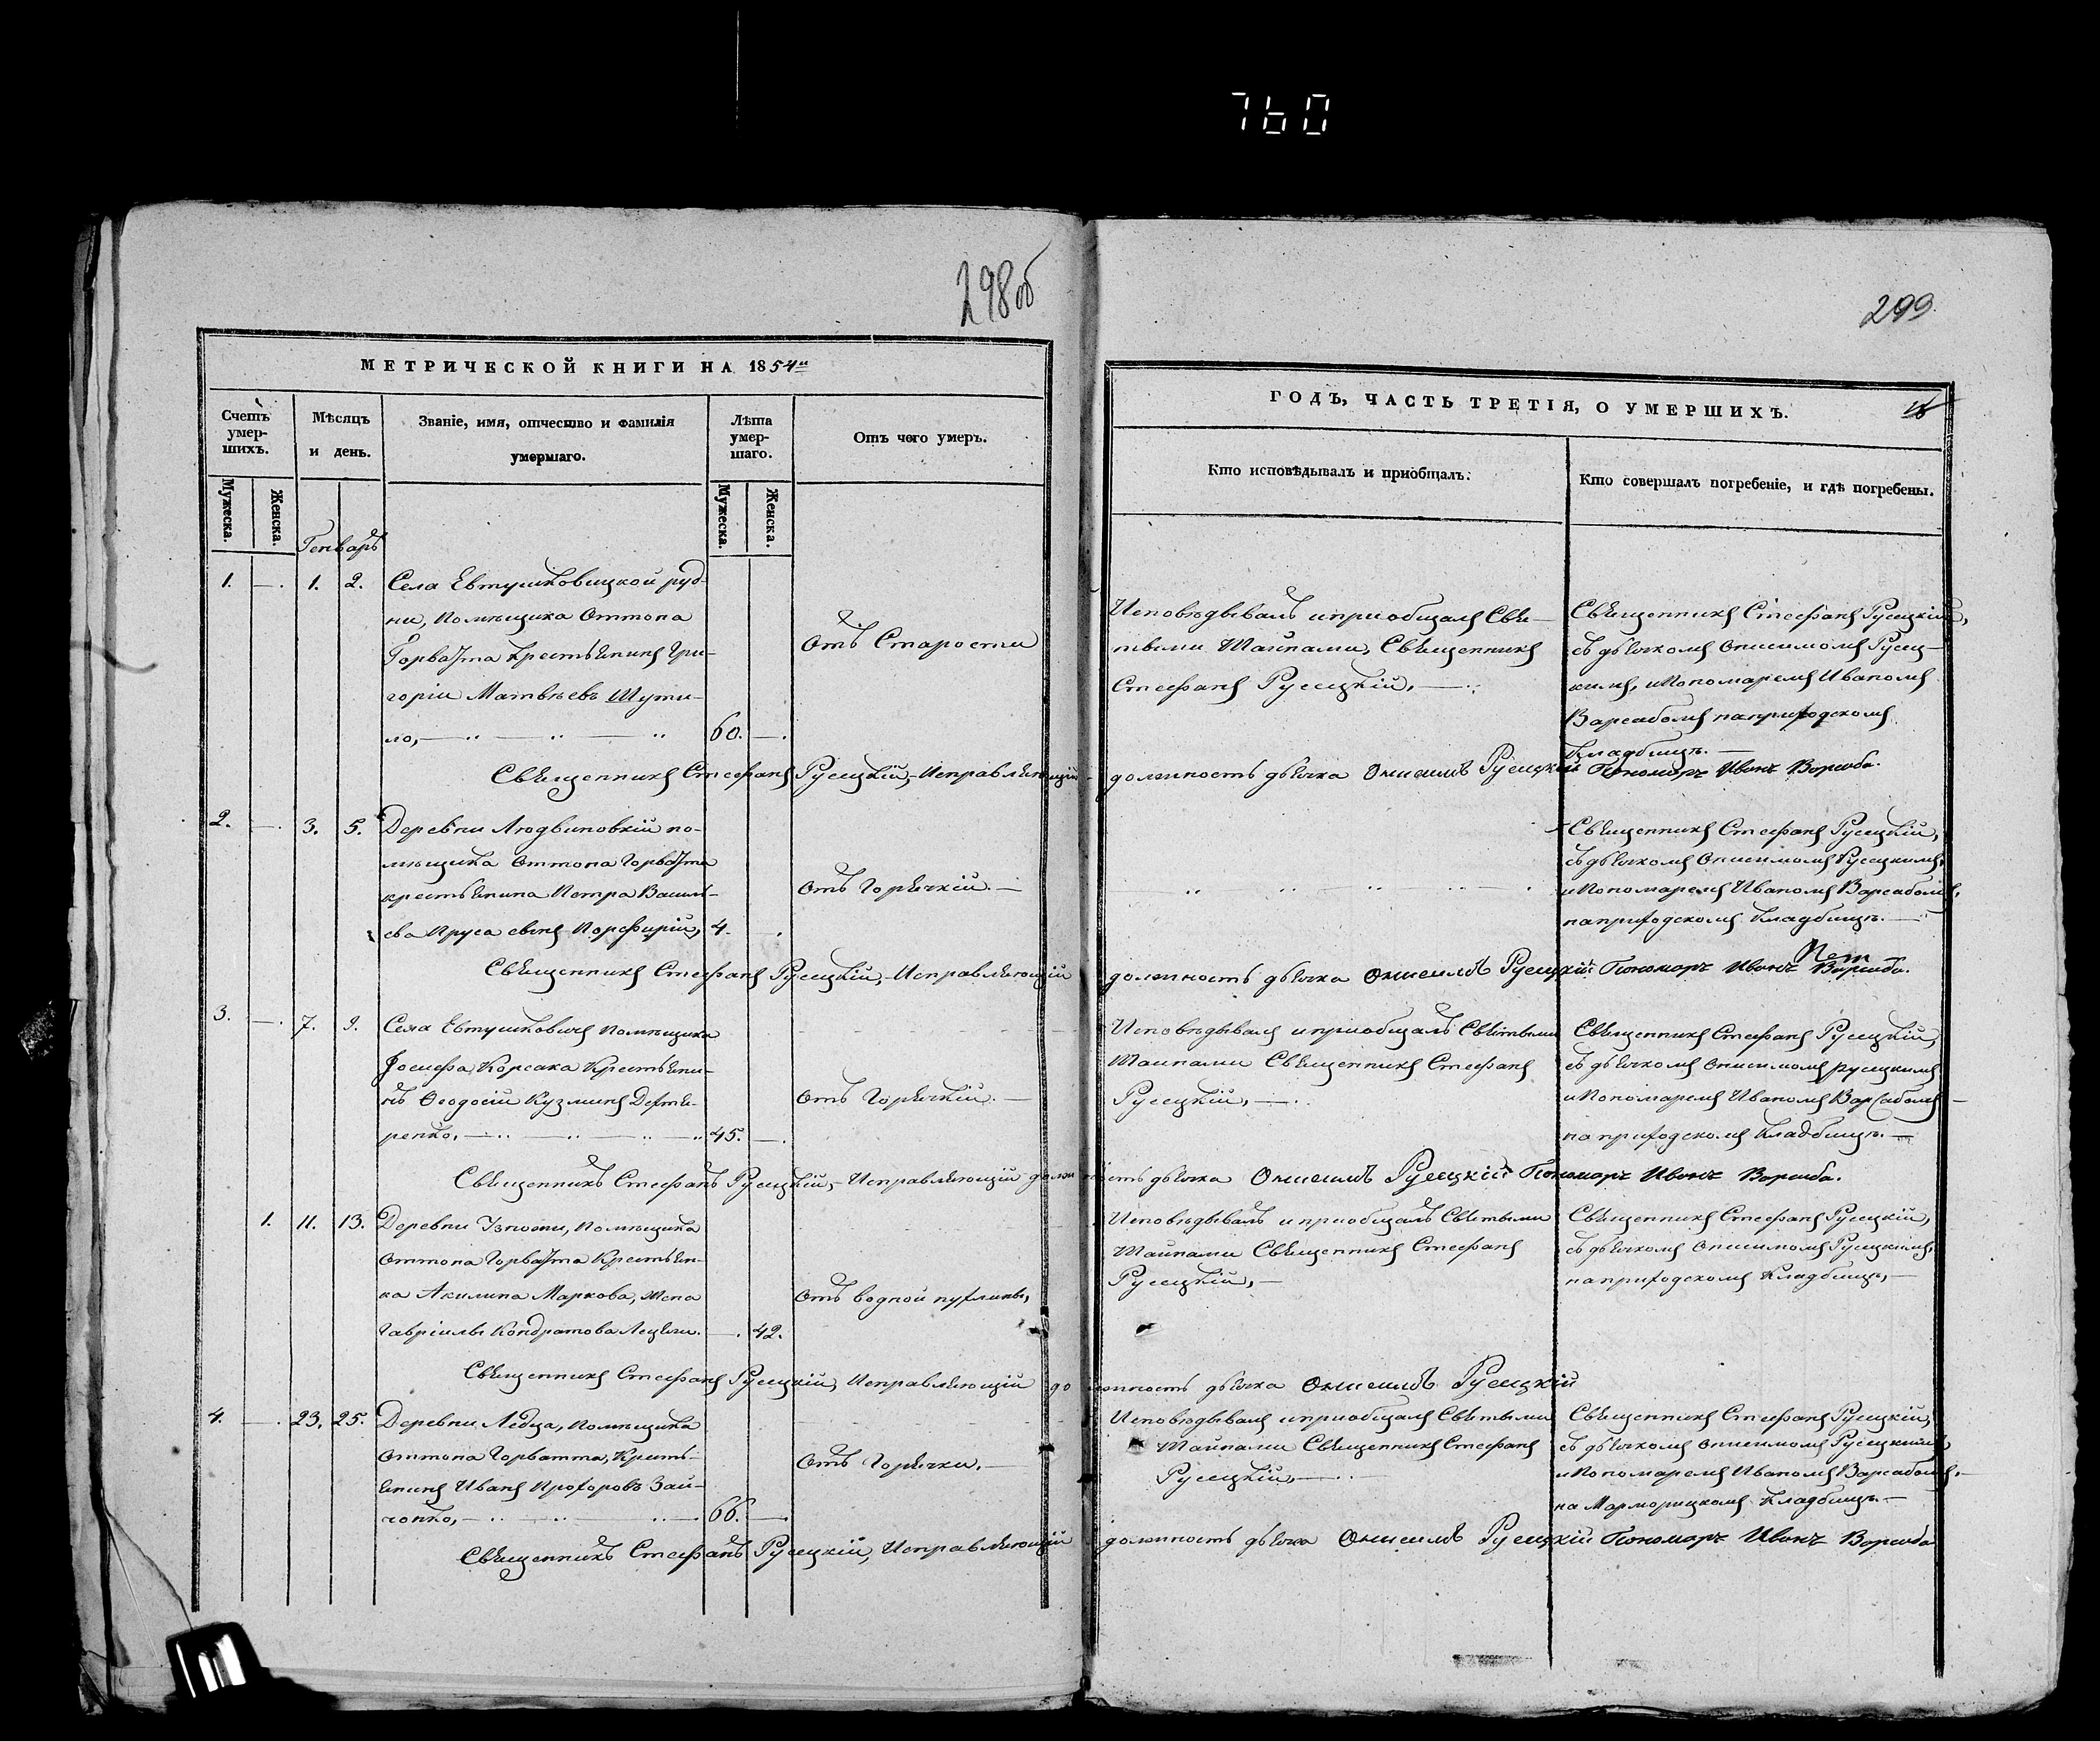 760
298об
299
МЕТРИЧЕСКОЙ КНИГИ НА 1854й
Счетъ умер-шихъ.
Мѣсяцъ и день.
Званіе, имя, отчество и фамилія умершаго.
Лѣта умер-шаго.
Отъ чего умеръ.
Мужеска.
Женска.
Мужеска.
Женска.
Генварь
1. — 1. 2. Села Евтушковицкой руд-
ни, помѣщика Оттона
Горватта крестьянинъ Гри-
горій Матвѣевъ Шути-
ло, 60. —
Отъ Старости
Священникъ Стефанъ Русецкій, Исправляющій
2. — 3. 5. Деревни Людвиновкій по-
мѣщика Оттона Горватта
крестьянина Петра Василь-
ева Пруса сынъ Порфирій, 4. —
Отъ Горячкій. —
Священникъ Стефанъ Русецкій, Исправляющій
3. — 7. 9. Села Евтушковичъ помѣщика
Іосифа Корсака Крестьяни-
нъ Ѳеодосій Кузминъ
45. —
Отъ Горячкій. —
Священникъ Стефанъ Русецкій, Исправляющій долж
1. 11. 13. Деревни помѣщика
Оттона Горватта Крестьян-
ка Акилина Маркова, жена
Гавріилы Кондратова — 42.
Отъ водной пухлины,
Священникъ Стефанъ Русецкій, Исправляющій до
4. — 23. 25. Деревни Ледца, помѣщика
Оттона Горватта, Кресть-
янинъ Иванъ Прохоровъ Зай-
чонко, 66. —
Отъ Горячки. —
Священникъ Стефанъ Русецкій, Исправляющій
ГОДЪ, ЧАСТЬ ТРЕТІЯ, О УМЕРШИХЪ.
Кто исповѣдывалъ и пріобщалъ.
Кто совершалъ погребеніе, и гдѣ погребены.
Исповѣдывалъ и приобщалъ Свя-
тыми Тайнами, Священникъ
Стефанъ Русецкій. —
Священникъ Стефанъ Русецкій,
съ дьячкомъ Онисимомъ Русец-
кимъ, и Пономаремъ Иваномъ
Варсабомъ на приходскомъ
Кладбищѣ. —
должность дьячка Онисимъ Русецкій Пономарь Иванъ Варсаба.
Священникъ Стефанъ Русецкій,
съ дьячкомъ Онисимомъ Русецкимъ,
и Пономаремъ Иваномъ Варсабомъ,
на приходскомъ Кладбищѣ. —
должность дьячка Онисимъ Русецкій Пономарь Иванъ Варсаба.
Исповѣдывалъ и приобщалъ Святыми
Тайнами Священникъ Стефанъ
Русецкій, —
Священникъ Стефанъ Русецкій,
съ дьячкомъ Онисимомъ Русецкимъ
и Пономаремъ Иваномъ Варсабомъ —
на приходскомъ Кладбищѣ. —
ность дьячка Онисимъ Русецкій Пономарь Иванъ Варсаба.
Исповѣдывалъ и приобщалъ Святыми
Тайнами Священникъ Стефанъ
Русецкій, —
Священникъ Стефанъ Русецкій,
съ дьячкомъ Онисимомъ Русецкимъ,
на приходскомъ Кладбищѣ, —
лжность дьячка Онисимъ Русецкій
Исповѣдывалъ и приобщалъ Святыми
Тайнами Священникъ Стефанъ
Русецкій, —
Священникъ Стефанъ Русецкій,
съ дьячкомъ Онисимомъ Русецкимъ,
и Пономаремъ Иваномъ Варсабомъ, —
на Марморицкомъ Кладбищѣ. —
должность дьячка Онисимъ Русецкій Пономарь Иванъ Варсаба